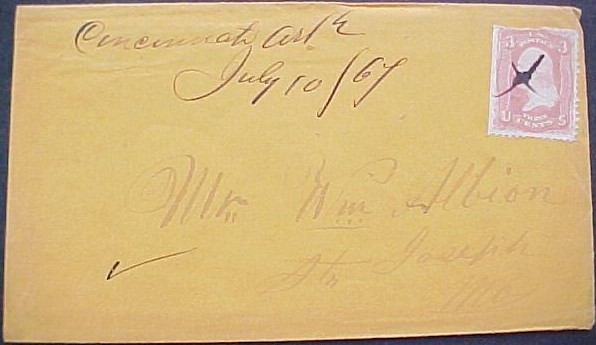 Cincinnati Arks
July 10/67
3 U.S. POSTAGE 3
U THREE CENTS S
Mr. Wm Albion
St. Joseph
Mo